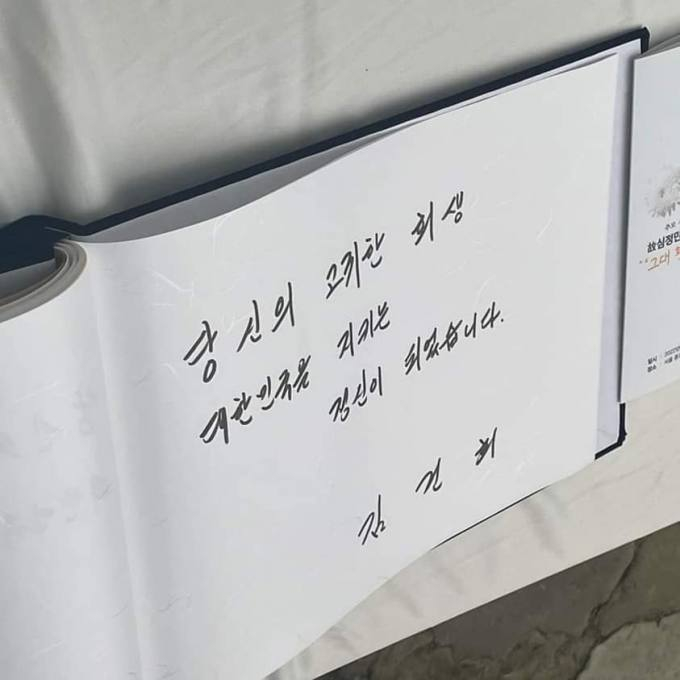 당신의 고귀한 희생
대한민국을 지키는
정신이 되었습니다.
김 건 희
추모
故심정민
“그대
일시 | 2022년
장소 | 서울